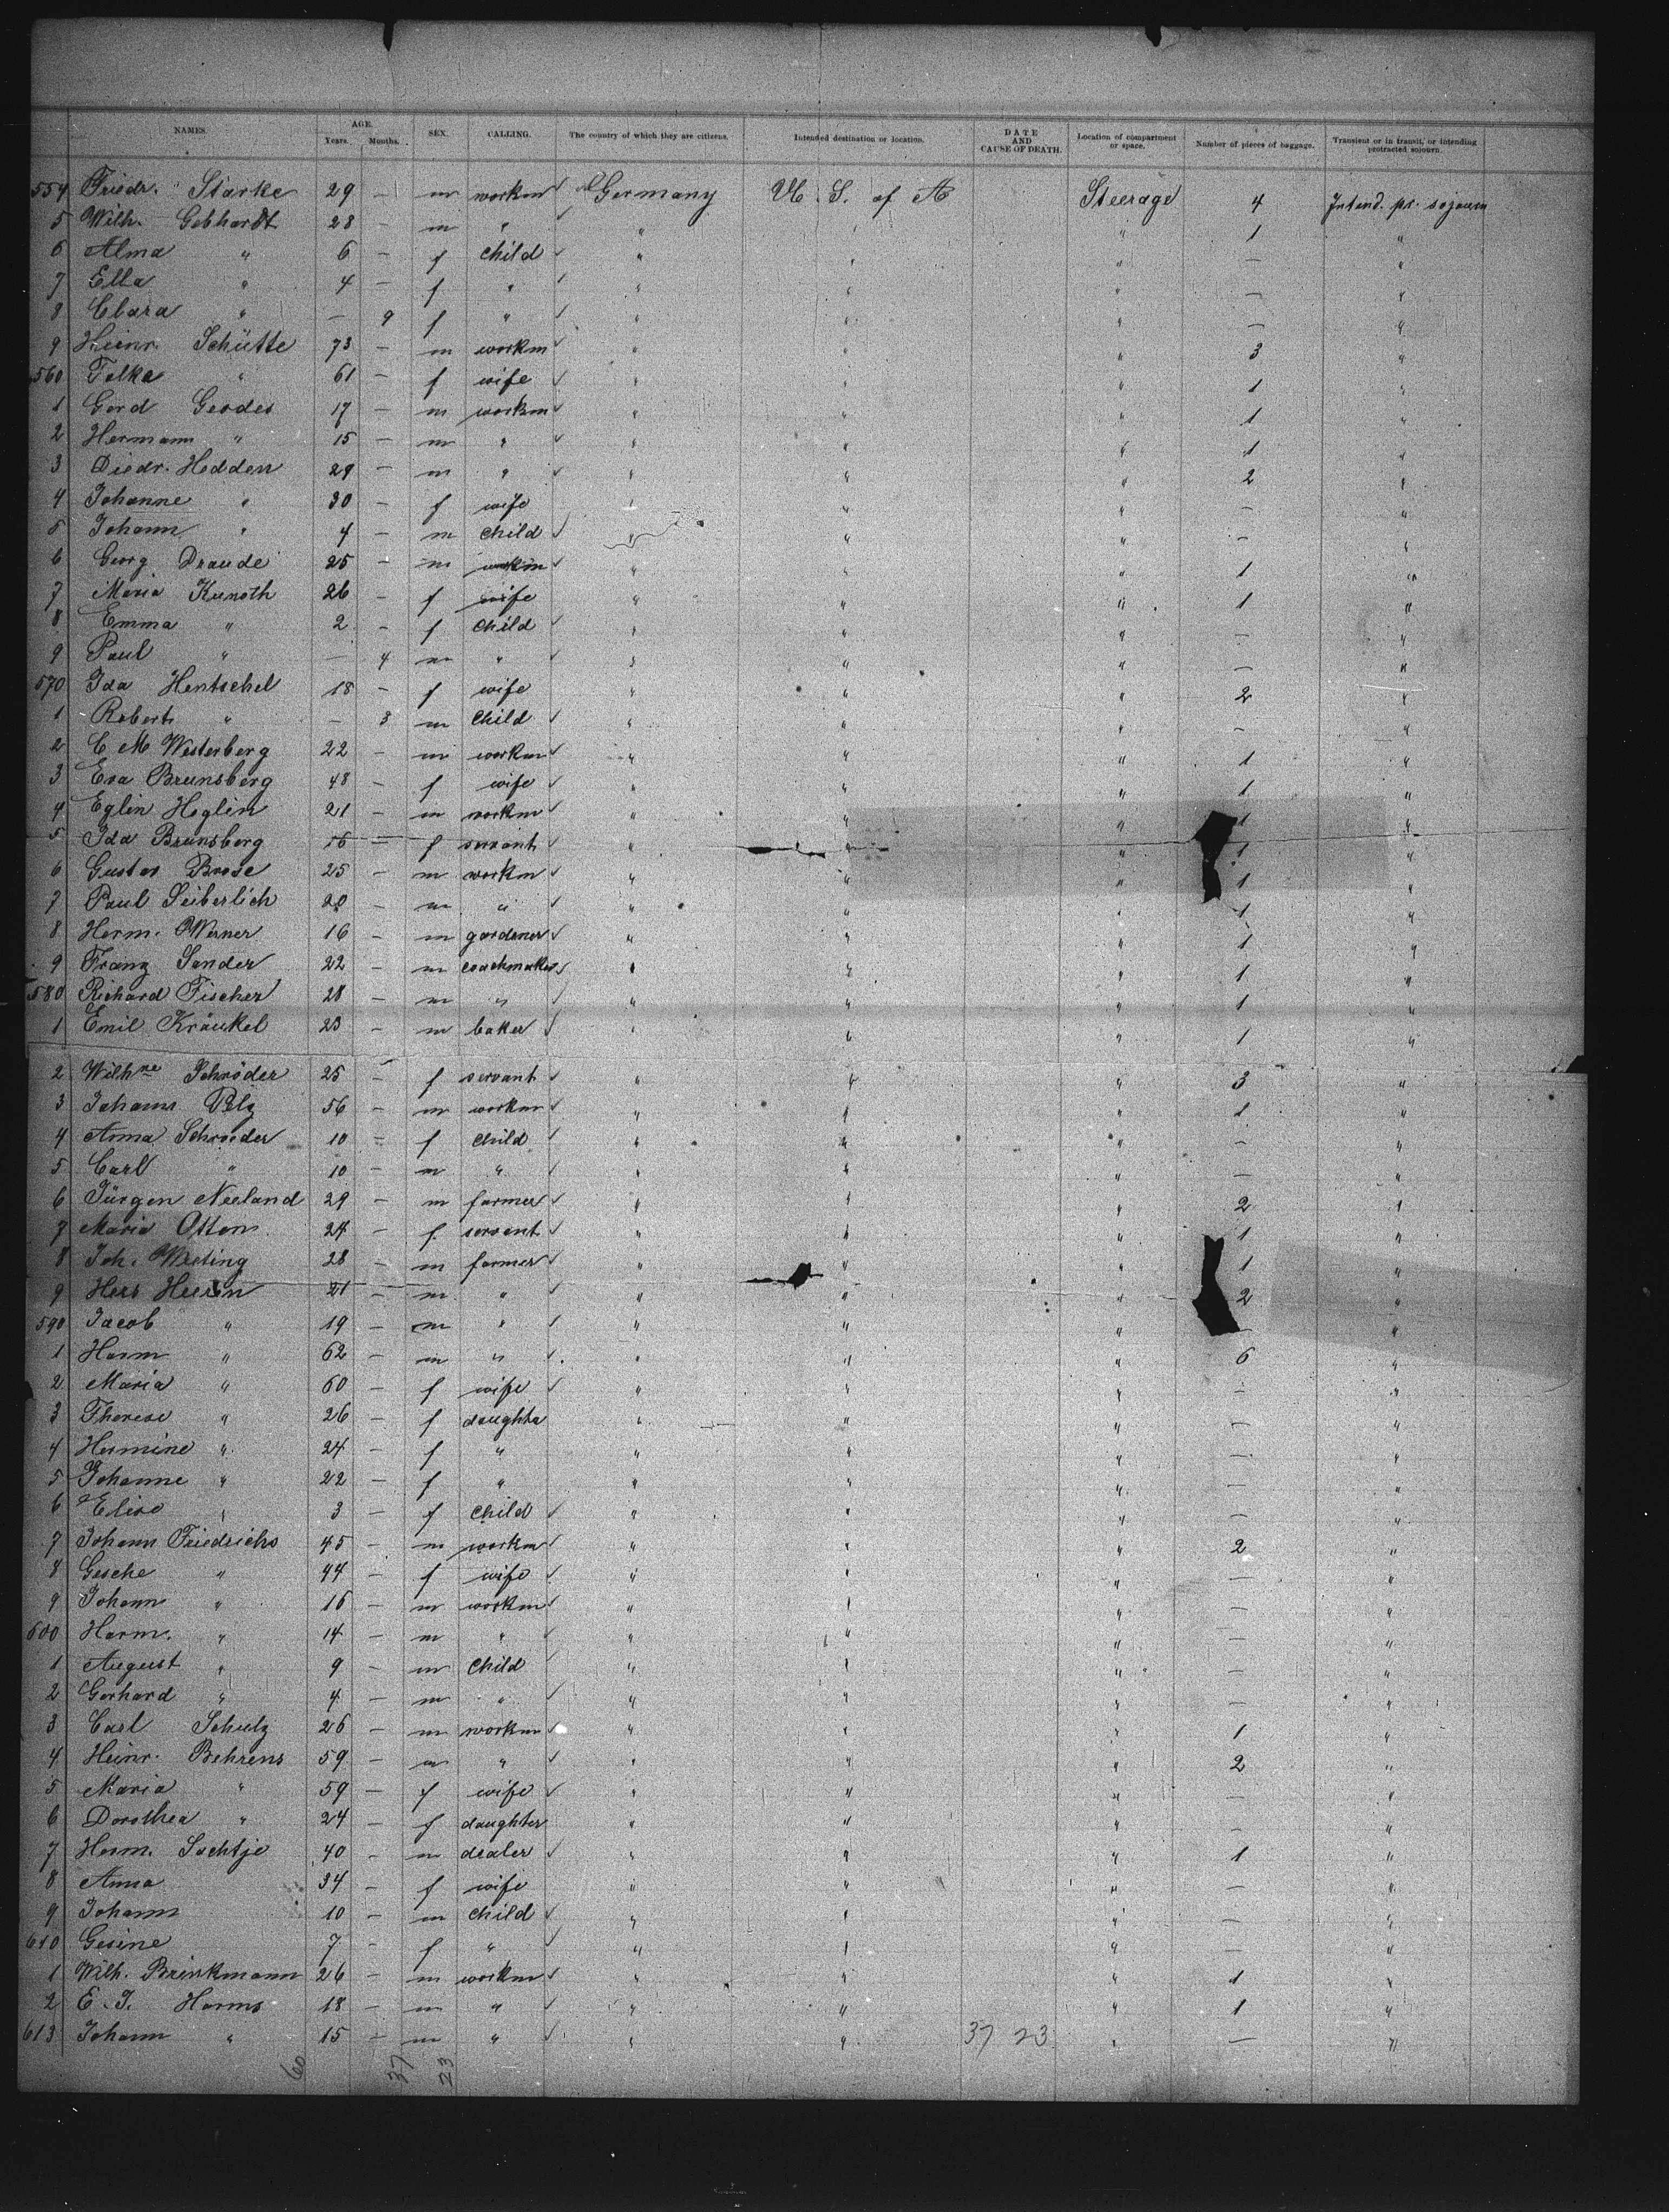 NAMES. AGE. Years. Months. SEX. CALLING. The country of which they are citizens. Intended destination or location. DATE AND CAUSE OF DEATH. Location of compartment or space. Number of pieces of baggage. Transient or in transit, or intending protracted sojourn.
554 Friedr. Starke 29 — m workm Germany U. S. of A Steerage 4 Intend. pr. sojourn
5 Wilh. Gebhardt 28 — m " " " " 1 "
6 Alma " 6 — f child " " " — "
7 Ella " 4 — f " " " " — "
8 Clara " — 9 f " " " " — "
9 Heinr. Schütte 73 — m workm " " " 3 "
560 Tolka " 61 — f wife " " " 1 "
1 Gerd Gerdes 17 — m workm " " " 1 "
2 Hermann " 15 — m " " " " 1 "
3 Diedr. Hedden 29 — m " " " " 2 "
4 Johanne " 30 — f wife " " " — "
5 Johann " 4 — m child " " " — "
6 Georg Draude 25 — m workm " " " 1 "
7 Maria Kunoth 26 — f wife " " " 1 "
8 Emma " 2 — f child " " " — "
9 Paul " — 4 m " " " " — "
570 Ida Hentschel 18 — f wife " " " 2 "
1 Robert " — 3 m child " " " — "
2 C M Westerberg 22 — m workm " " " 1 "
3 Eva Brunsberg 48 — f wife " " " 1 "
4 Eglin Heglin 21 — m workm " " " 1 "
5 Ida Brunsberg 16 — f servant " " " 1 "
6 Gustav Brose 25 — m workm " " " 1 "
7 Paul Seiberlich 20 — m " " " " 1 "
8 Herm. Werner 16 — m gardener " " " 1 "
9 Franz Sander 22 — m coachmaker " " " 1 "
580 Richard Fischer 28 — m " " " " 1 "
1 Emil Kräukel 23 — m baker " " " 1 "
2 Wilhne Schröder 25 — f servant " " " 3 "
3 Johann Pelz 56 — m workm " " " 1 "
4 Anna Schroeder 10 — f child " " " — "
5 Carl " 10 — m " " " " — "
6 Jürgen Neeland 29 — m farmer " " " 2 "
7 Maria Otten 24 — f servant " " " 1 "
8 Joh. Weeting 28 — m farmer " " " 1 "
9 21 — m " " " " 2 "
590 Jacob " 19 — m " " " " — "
1 Harm " 62 — m " " " " 6 "
2 Maria " 60 — f wife " " " — "
3 Therese " 26 — f daughter " " " — "
4 Hermine " 24 — f " " " " — "
5 Johanne " 22 — f " " " " — "
6 Elise " 3 — f child " " " — "
7 Johann Friedrichs 45 — m workm " " " 2 "
8 Gesche " 44 — f wife " " " — "
9 Johann " 16 — m workm " " " — "
600 Harm. " 14 — m " " " " — "
1 August " 9 — m child " " " — "
2 Gerhard " 4 — m " " " " — "
3 Carl Schulz 26 — m workm " " " 1 "
4 Heinr. Behrens 59 — m " " " " 2 "
5 Maria " 59 — f wife " " " — "
6 Dorothea " 24 — f daughter " " " — "
7 Herm. Sachtje 40 — m dealer " " " 1 "
8 Anna 34 — f wife " " " — "
9 Johann 10 — m child " " " — "
610 Gesine 7 — f " " " " — "
1 Wilh. Brinkmann 26 — m workm " " " 1 "
2 E. J. Harms 18 — m " " " " 1 "
613 Johann " 15 — m " " " 37 23 " — "
60 37 23